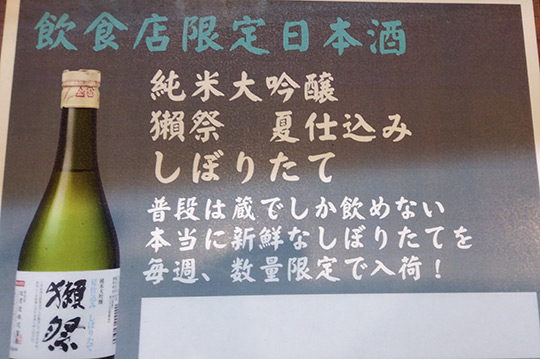 飲食店限定日本酒
純米大吟醸
獺祭 夏仕込み
しぼりたて
普段は蔵でしか飲めない
本当に新鮮なしぼりたてを
毎週、数量限定で入荷！
獺祭
純米大吟醸
夏仕込み しぼりたて